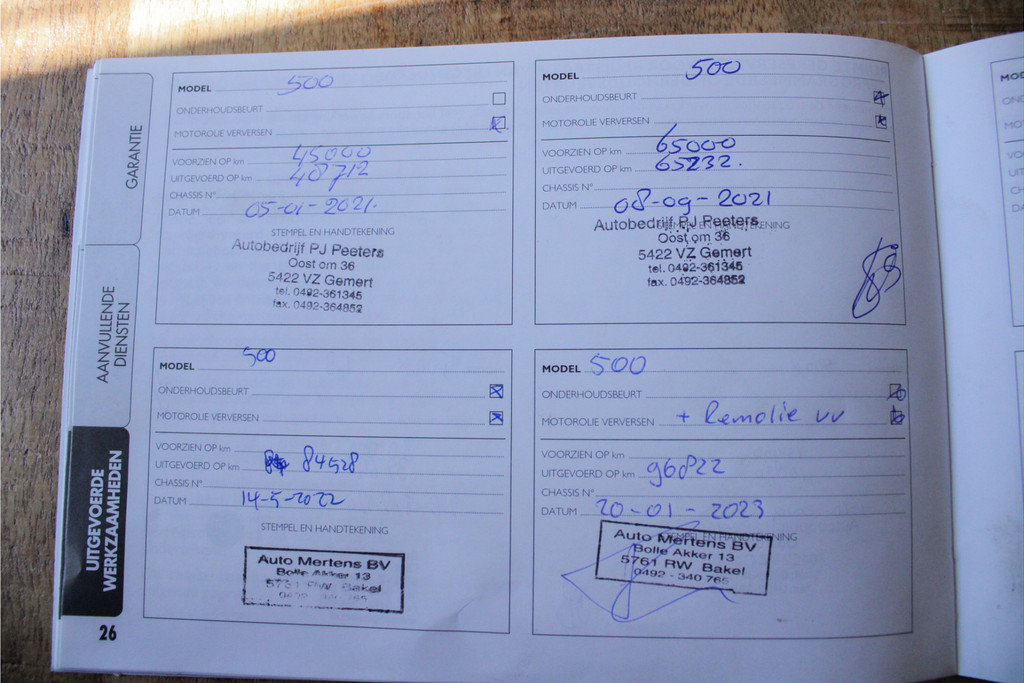 GARANTIE
AANVULLENDE
DIENSTEN
UITGEVOERDE
WERKZAAMHEDEN
26
MODEL 500
ONDERHOUDSBEURT
MOTOROLIE VERVERSEN
VOORZIEN OP km 45000
UITGEVOERD OP km 48712
CHASSIS N°
DATUM 05-01-2021.
STEMPEL EN HANDTEKENING
Autobedrijf PJ Peeters
Oost om 36
5422 VZ Gemert
tel. 0492-361345
fax. 0492-364852
MODEL 500
ONDERHOUDSBEURT
MOTOROLIE VERVERSEN
VOORZIEN OP km 65000
UITGEVOERD OP km 65232.
CHASSIS N°
DATUM 08-09-2021
STEMPEL EN HANDTEKENING
Autobedrijf PJ Peeters
Oost om 36
5422 VZ Gemert
tel. 0492-361345
fax. 0492-364852
MODEL 500
ONDERHOUDSBEURT
MOTOROLIE VERVERSEN
VOORZIEN OP km
UITGEVOERD OP km 84528
CHASSIS N°
DATUM 14-5-2022
STEMPEL EN HANDTEKENING
Auto Mertens BV
Bolle Akker 13
5761 RW Bakel
0492 - 340 765
MODEL 500
ONDERHOUDSBEURT
MOTOROLIE VERVERSEN + Remolie vv
VOORZIEN OP km
UITGEVOERD OP km 96822
CHASSIS N°
DATUM 20-01-2023
STEMPEL EN HANDTEKENING
Auto Mertens BV
Bolle Akker 13
5761 RW Bakel
0492 - 340 765